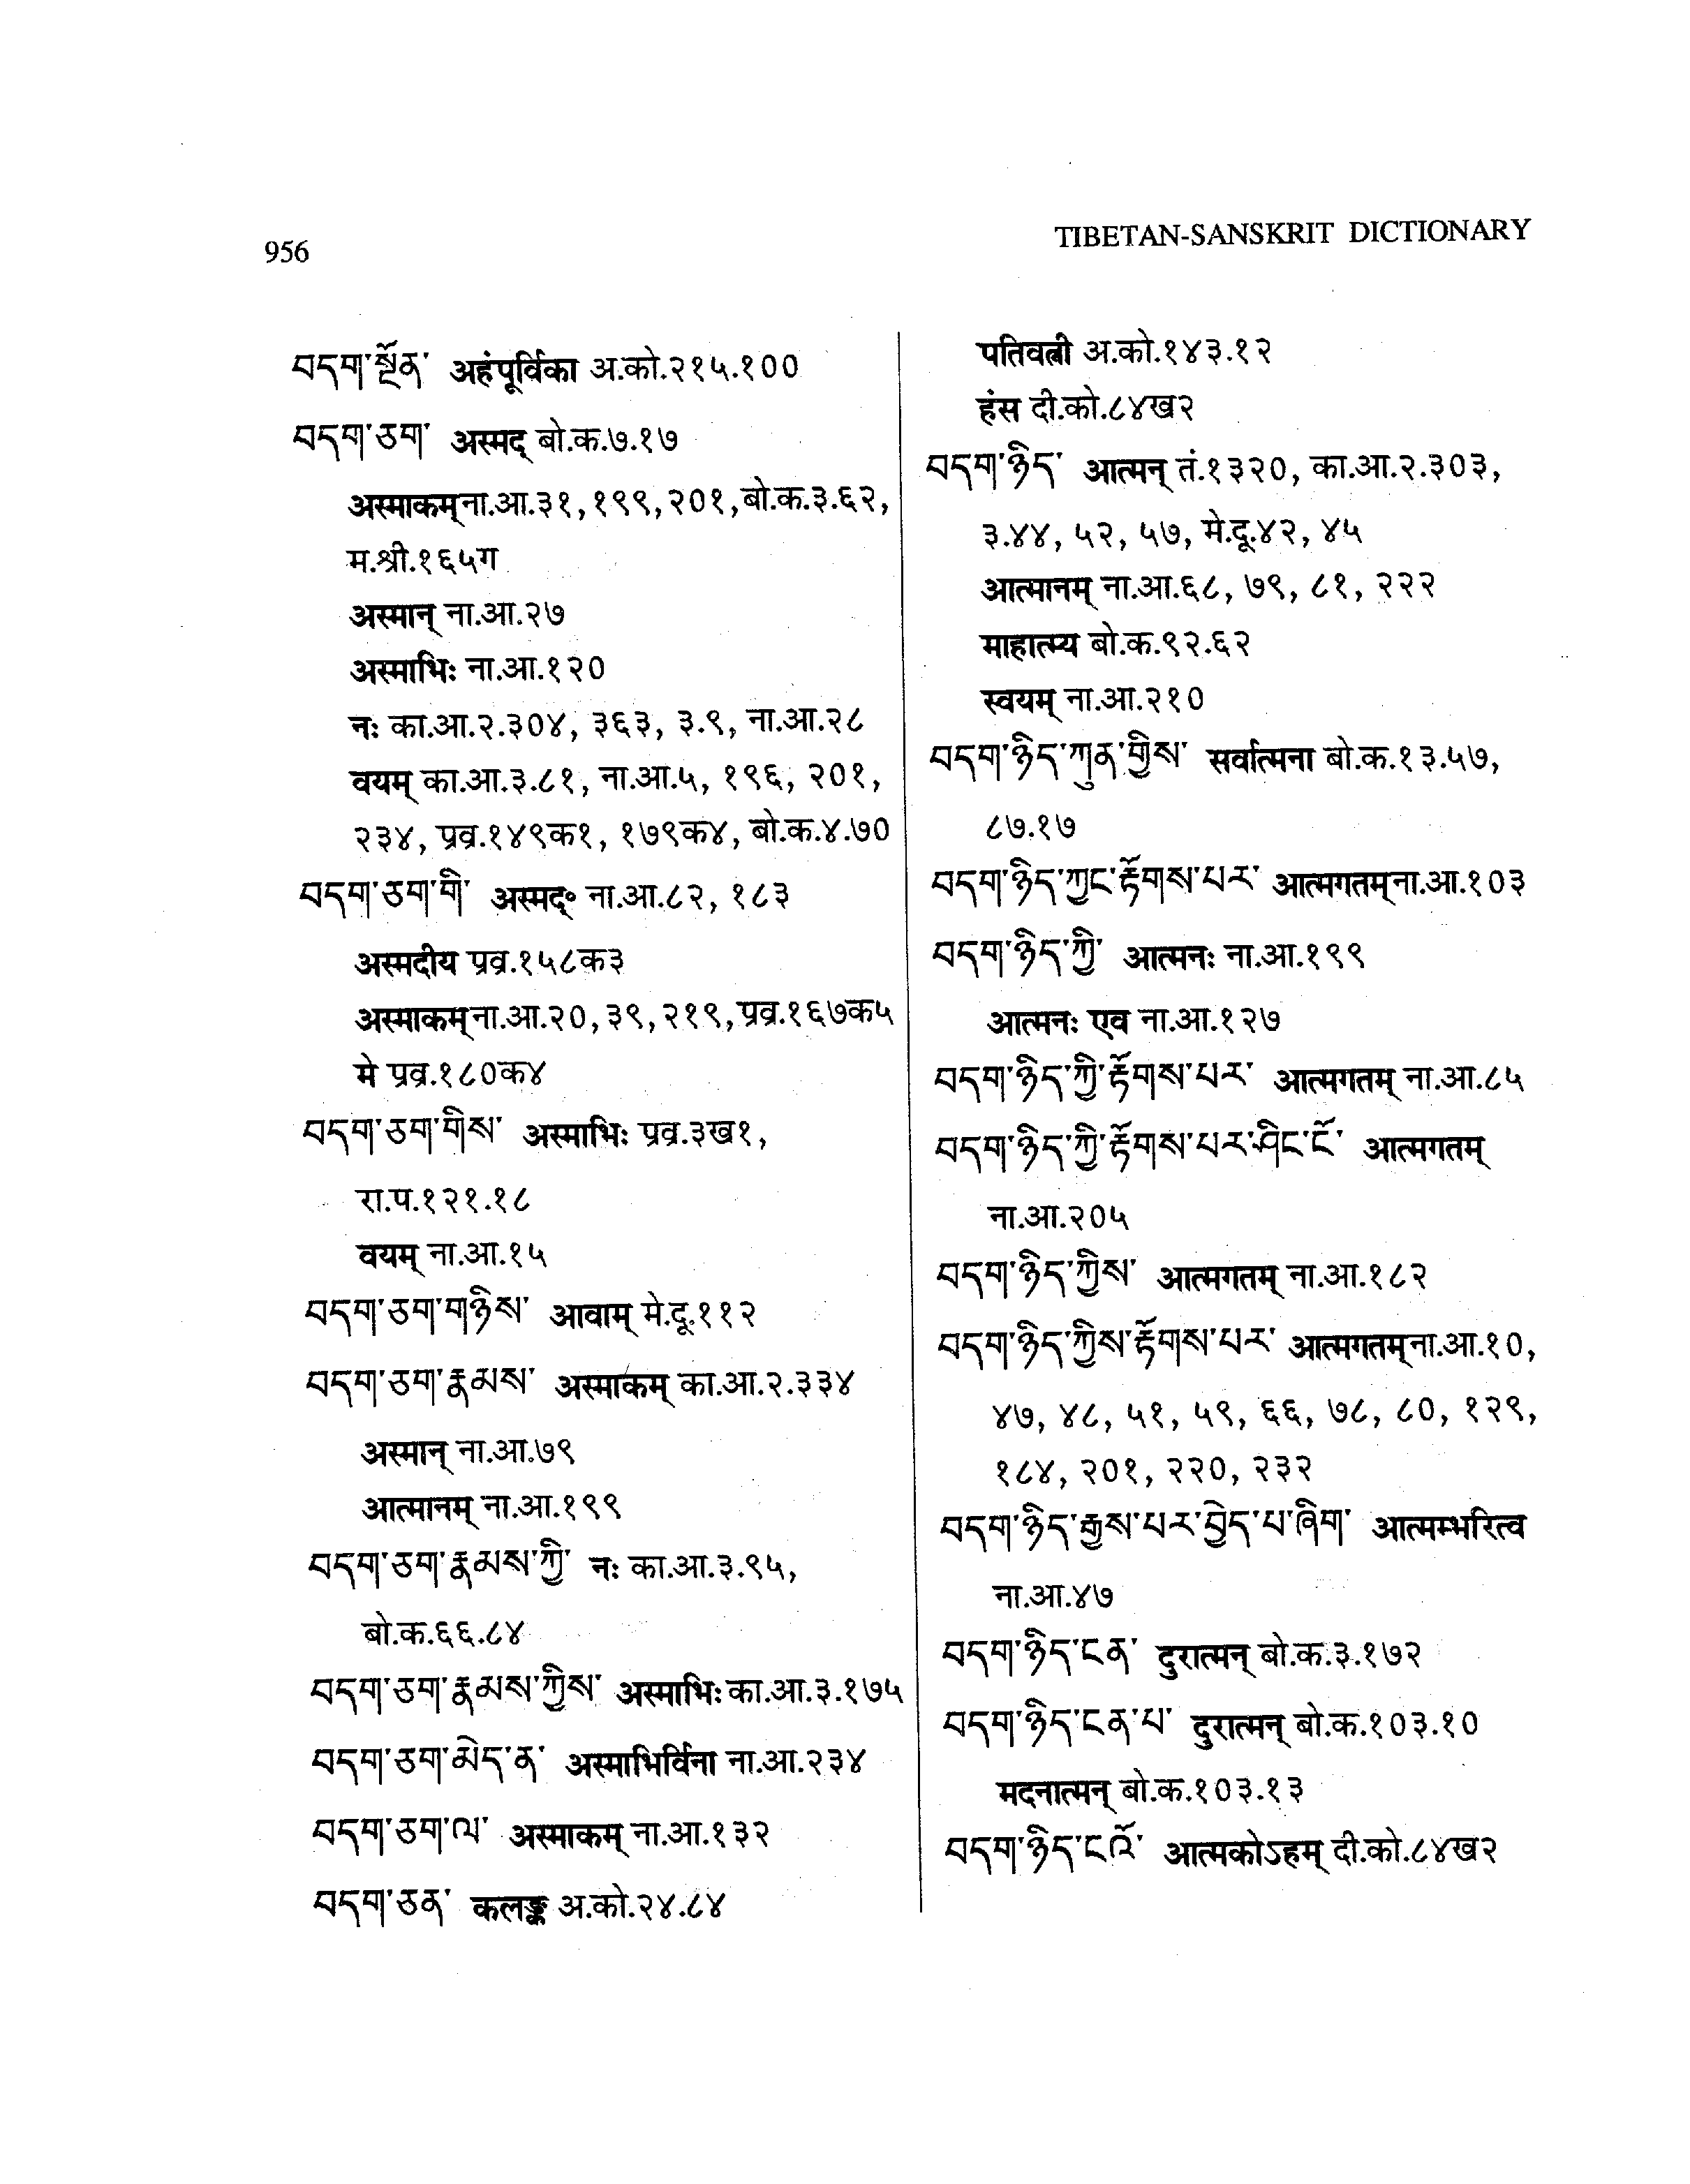 956
TIBETAN-SANSKRIT DICTIONARY
བདག་སྔོན་ अहंपूर्विका अ.को.२१५.१००
བདག་ཅག་ अस्मद् बो.क.७.१७
अस्माकम् ना.आ.३१, १९९, २०१, बो.क.३.६२,
म.श्री.१६५ग
अस्मान् ना.आ.२७
अस्माभिः ना.आ.१२०
नः का.आ.२.३०४, ३६३, ३.९, ना.आ.२८
वयम् का.आ.३.८१, ना.आ.५, १९६, २०१,
२३४, प्रव्र.१४९क१, १७९क४, बो.क.४.७०
བདག་ཅག་གི་ अस्मद्० ना.आ.८२, १८३
अस्मदीय प्रव्र.१५८क३
अस्माकम् ना.आ.२०, ३९, २१९, प्रव्र.१६७क५
मे प्रव्र.१८०क४
བདག་ཅག་གིས་ अस्माभिः प्रव्र.३ख१,
रा.प.१२१.१८
वयम् ना.आ.१५
བདག་ཅག་གཉིས་ आवाम् मे.दू.११२
བདག་ཅག་རྣམས་ अस्माकम् का.आ.२.३३४
अस्मान् ना.आ.७९
आत्मानम् ना.आ.१९९
བདག་ཅག་རྣམས་ཀྱི་ नः का.आ.३.९५,
बो.क.६६.८४
བདག་ཅག་རྣམས་ཀྱིས་ अस्माभिः का.आ.३.१७५
བདག་ཅག་མེད་ན་ अस्माभिर्विना ना.आ.२३४
བདག་ཅག་ལ་ अस्माकम् ना.आ.१३२
བདག་ཅན་ कलङ्क अ.को.२४.८४
पतिवत्नी अ.को.१४३.१२
हंस दी.को.८४ख२
བདག་ཉིད་ आत्मन् तं.१३२०, का.आ.२.३०३,
३.४४, ५२, ५७, मे.दू.४२, ४५
आत्मानम् ना.आ.६८, ७९, ८१, २२२
माहात्म्य बो.क.९२.६२
स्वयम् ना.आ.२१०
བདག་ཉིད་ཀུན་གྱིས་ सर्वात्मना बो.क.१३.५७,
८७.१७
བདག་ཉིད་ཀྱང་རྟོགས་པར་ आत्मगतम् ना.आ.१०३
བདག་ཉིད་ཀྱི་ आत्मनः ना.आ.१९९
आत्मनः एव ना.आ.१२७
བདག་ཉིད་ཀྱི་རྟོགས་པར་ आत्मगतम् ना.आ.८५
བདག་ཉིད་ཀྱི་རྟོགས་པར་ཤིང་ངོ་ आत्मगतम्
ना.आ.२०५
བདག་ཉིད་ཀྱིས་ आत्मगतम् ना.आ.१८२
བདག་ཉིད་ཀྱིས་རྟོགས་པར་ आत्मगतम् ना.आ.१०,
४७, ४८, ५१, ५९, ६६, ७८, ८०, १२९,
१८४, २०१, २२०, २३२
བདག་ཉིད་རྒྱས་པར་བྱེད་པ་ཞིག་ आत्मम्भरित्व
ना.आ.४७
བདག་ཉིད་ངན་ दुरात्मन् बो.क.३.१७२
བདག་ཉིད་ངན་པ་ दुरात्मन् बो.क.१०३.१०
मदनात्मन् बो.क.१०३.१३
བདག་ཉིད་ངའོ་ आत्मकोऽहम् दी.को.८४ख२